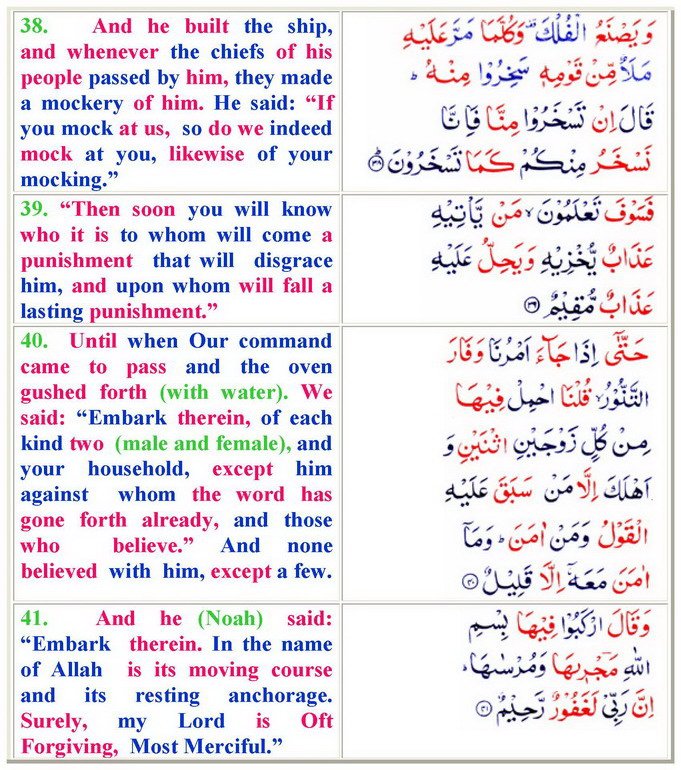 38. And he built the ship,
and whenever the chiefs of his
people passed by him, they made
a mockery of him. He said: “If
you mock at us, so do we indeed
mock at you, likewise of your
mocking.”
وَ يَصْنَعُ الْفُلْكَ ۟ وَكُلَّمَا مَرَّ عَلَيْهِ
مَلَاٌ مِّنْ قَوْمِهٖ سَخِرُوْا مِنْهُ ؕ
قَالَ اِنْ تَسْخَرُوْا مِنَّا فَاِنَّا
نَسْخَرُ مِنْكُمْ كَمَا تَسْخَرُوْنَ ؕ﴿۳۸﴾
39. “Then soon you will know
who it is to whom will come a
punishment that will disgrace
him, and upon whom will fall a
lasting punishment.”
فَسَوْفَ تَعْلَمُوْنَ ۙ مَنْ يَّاْتِيْهِ
عَذَابٌ يُّخْزِيْهِ وَيَحِلُّ عَلَيْهِ
عَذَابٌ مُّقِيْمٌ ﴿۳۹﴾
40. Until when Our command
came to pass and the oven
gushed forth (with water). We
said: “Embark therein, of each
kind two (male and female), and
your household, except him
against whom the word has
gone forth already, and those
who believe.” And none
believed with him, except a few.
حَتّٰۤى اِذَا جَآءَ اَمْرُنَا وَفَارَ
التَّنُّوْرُ ۙ قُلْنَا احْمِلْ فِيْهَا
مِنْ كُلٍّ زَوْجَيْنِ اثْنَيْنِ وَ
اَهْلَكَ اِلَّا مَنْ سَبَقَ عَلَيْهِ
الْقَوْلُ وَمَنْ اٰمَنَ ؕ وَمَاۤ
اٰمَنَ مَعَهٗۤ اِلَّا قَلِيْلٌ ﴿۴۰﴾
41. And he (Noah) said:
“Embark therein. In the name
of Allah is its moving course
and its resting anchorage.
Surely, my Lord is Oft
Forgiving, Most Merciful.”
وَقَالَ ارْكَبُوْا فِيْهَا بِسْمِ
اللّٰهِ مَجْرٖىهَا وَمُرْسٰىهَا ؕ
اِنَّ رَبِّيْ لَغَفُوْرٌ رَّحِيْمٌ ﴿۴۱﴾